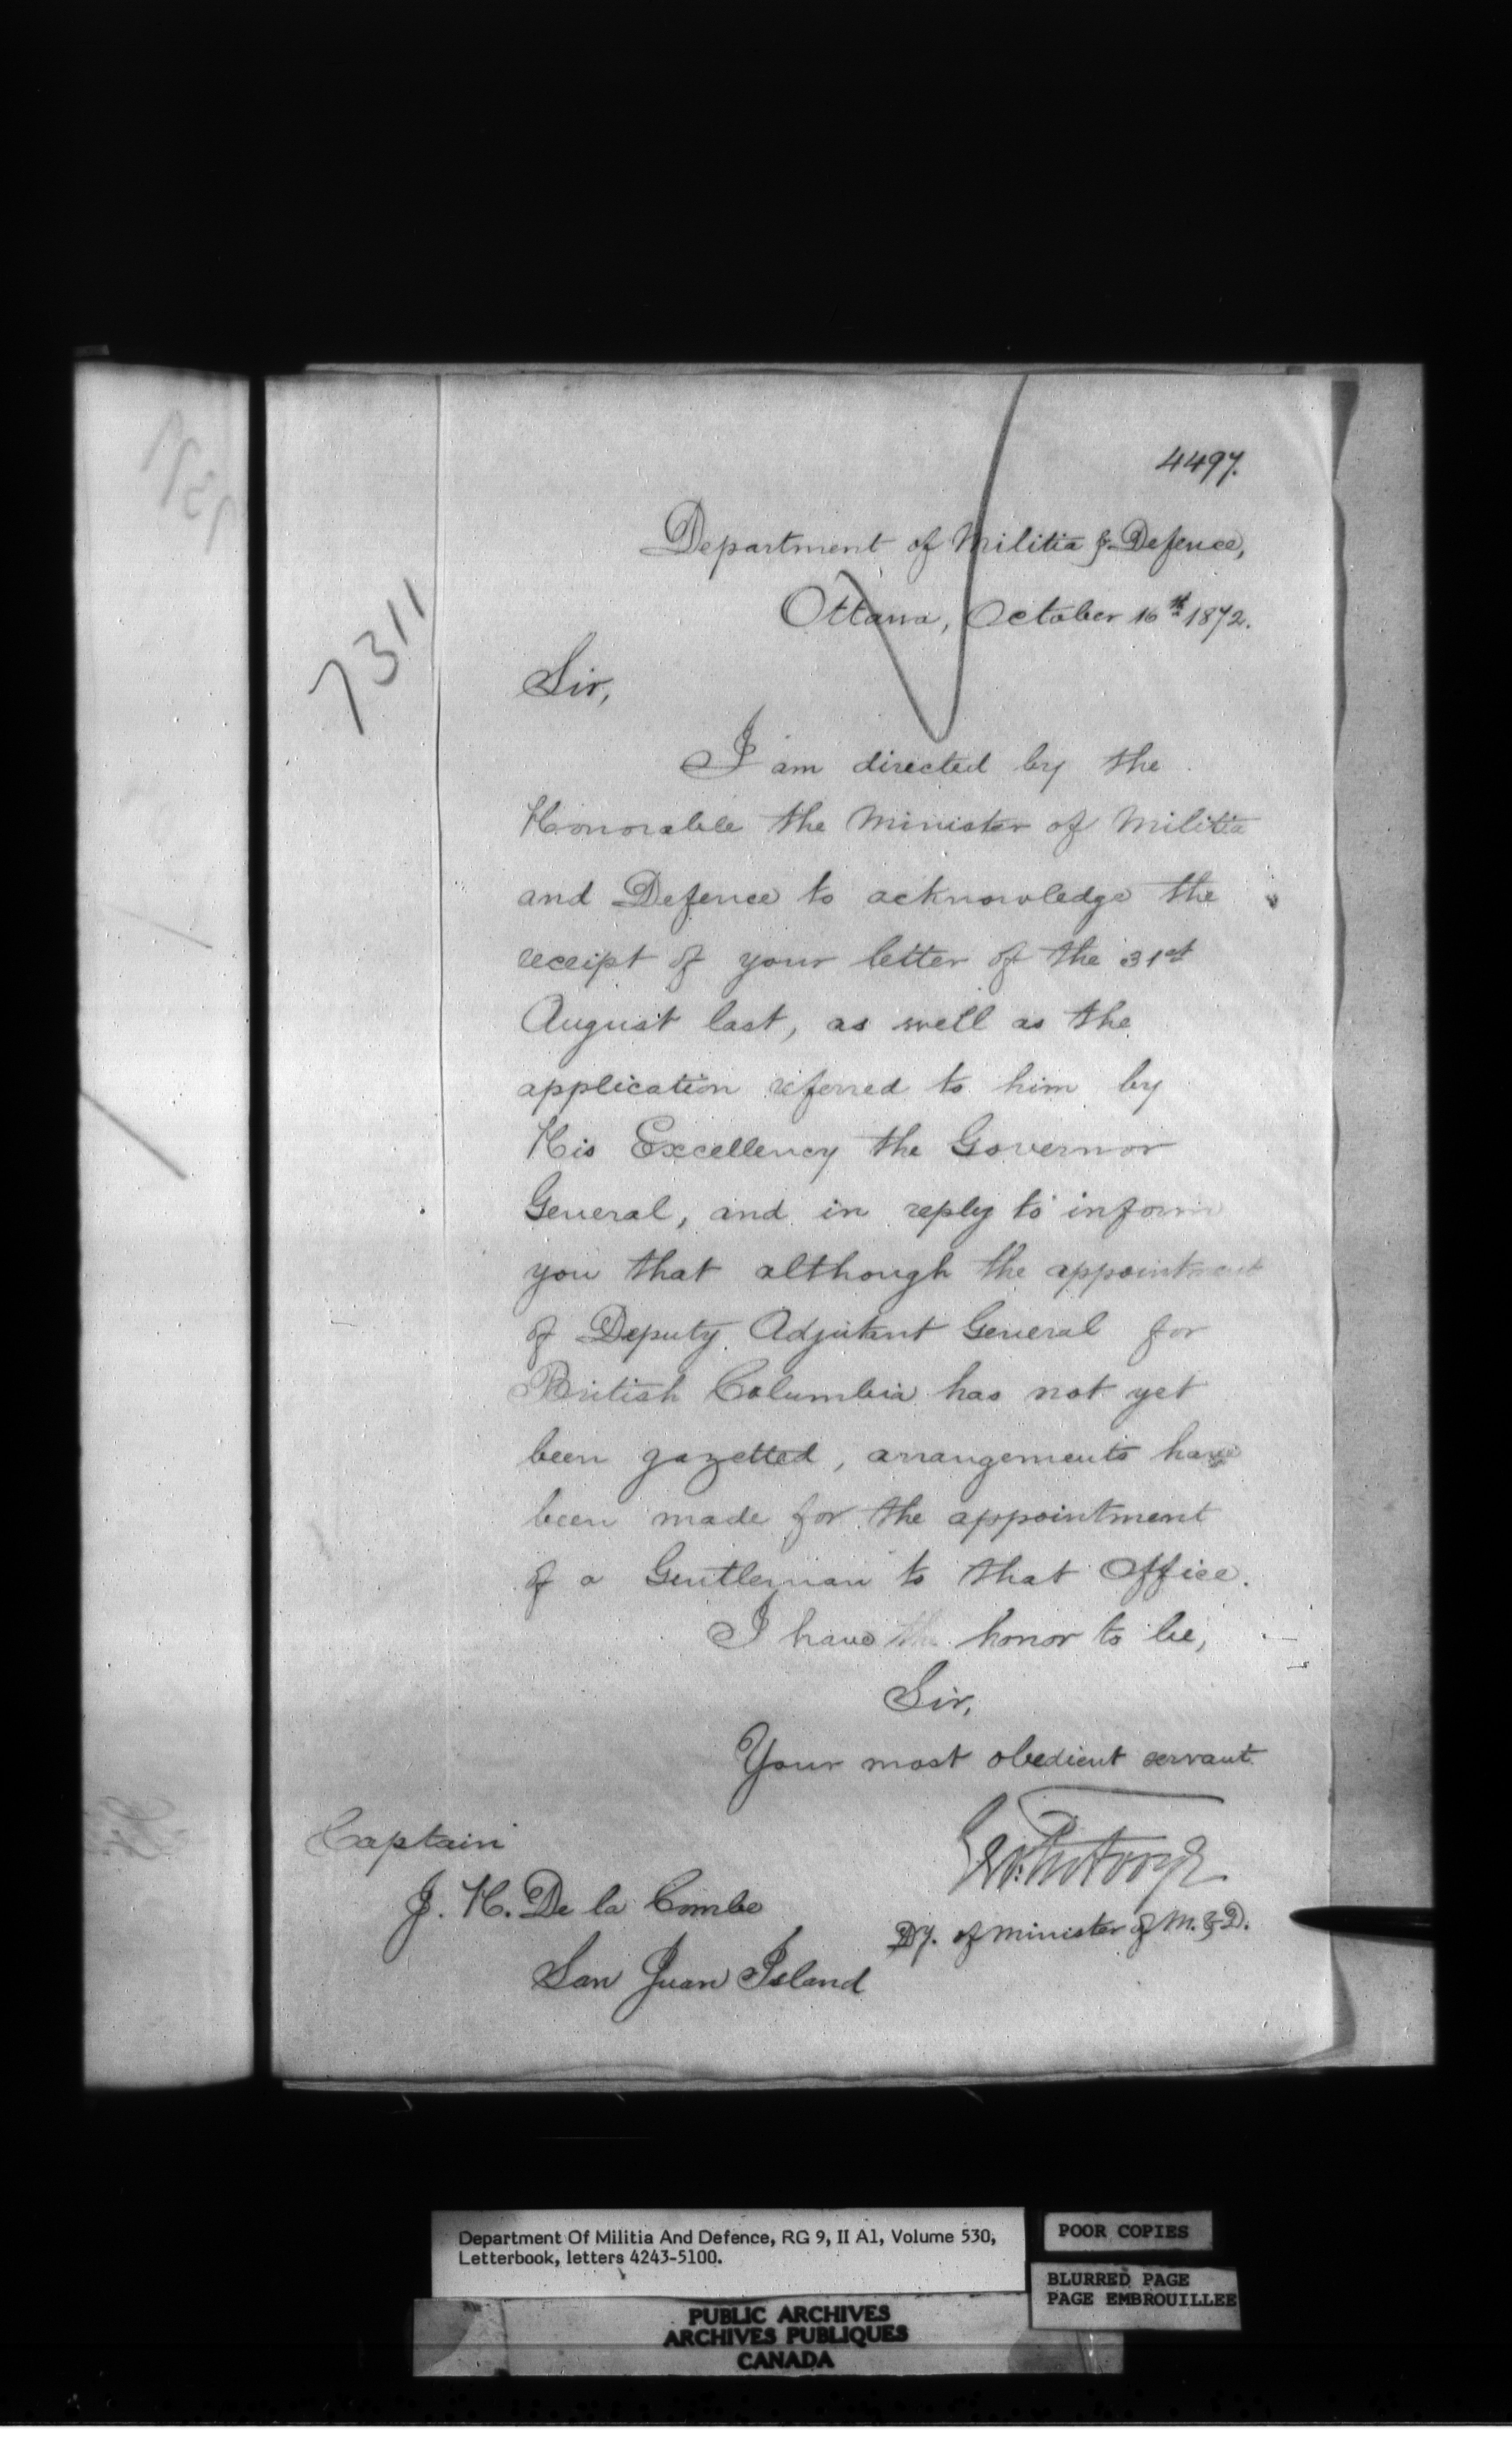 4497.
Department of Militia & Defence,
Ottawa, October 16th 1872.
7311
Sir,
I am directed by the
Honorable the Minister of Militia
and Defence to acknowledge the
receipt of your letter of the 31st
August last, as well as the
application referred to him by
His Excellency the Governor
General, and in reply to inform
you that although the appointment
of Deputy Adjutant General for
British Columbia has not yet
been gazetted, arrangements have
been made for the appointment
of a Gentleman to that Office.
I have the honor to be,
Sir,
Your most obedient servant
Dy. of Minister of M. & D.
Captain
J. H. De la Combe
San Juan Island
Department Of Militia And Defence, RG 9, II A1, Volume 530,
Letterbook, letters 4243-5100.
POOR COPIES
BLURRED PAGE
PAGE EMBROUILLEE
PUBLIC ARCHIVES
ARCHIVES PUBLIQUES
CANADA